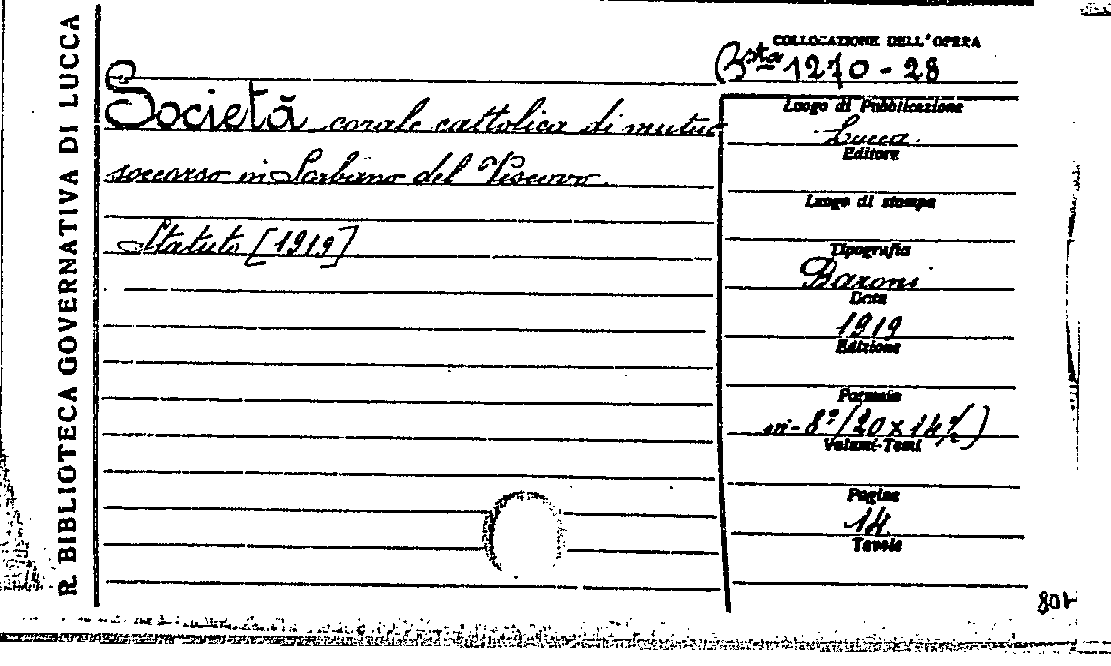 R. BIBLIOTECA GOVERNATIVA DI LUCCA
COLLOCAZIONE DELL'OPERA
Bsta 1270 - 28
Società corale cattolica di mutuo
soccorso in Sorbano del Vescovo.
Statuto [1919]
Luogo di Pubblicazione
Lucca.
Editore
Luogo di stampa
Tipografia
Baroni
Data
1919
Edizione
Formato
in-8º (20 x 14½)
Volumi-Tomi
Pagine
14.
Tavole